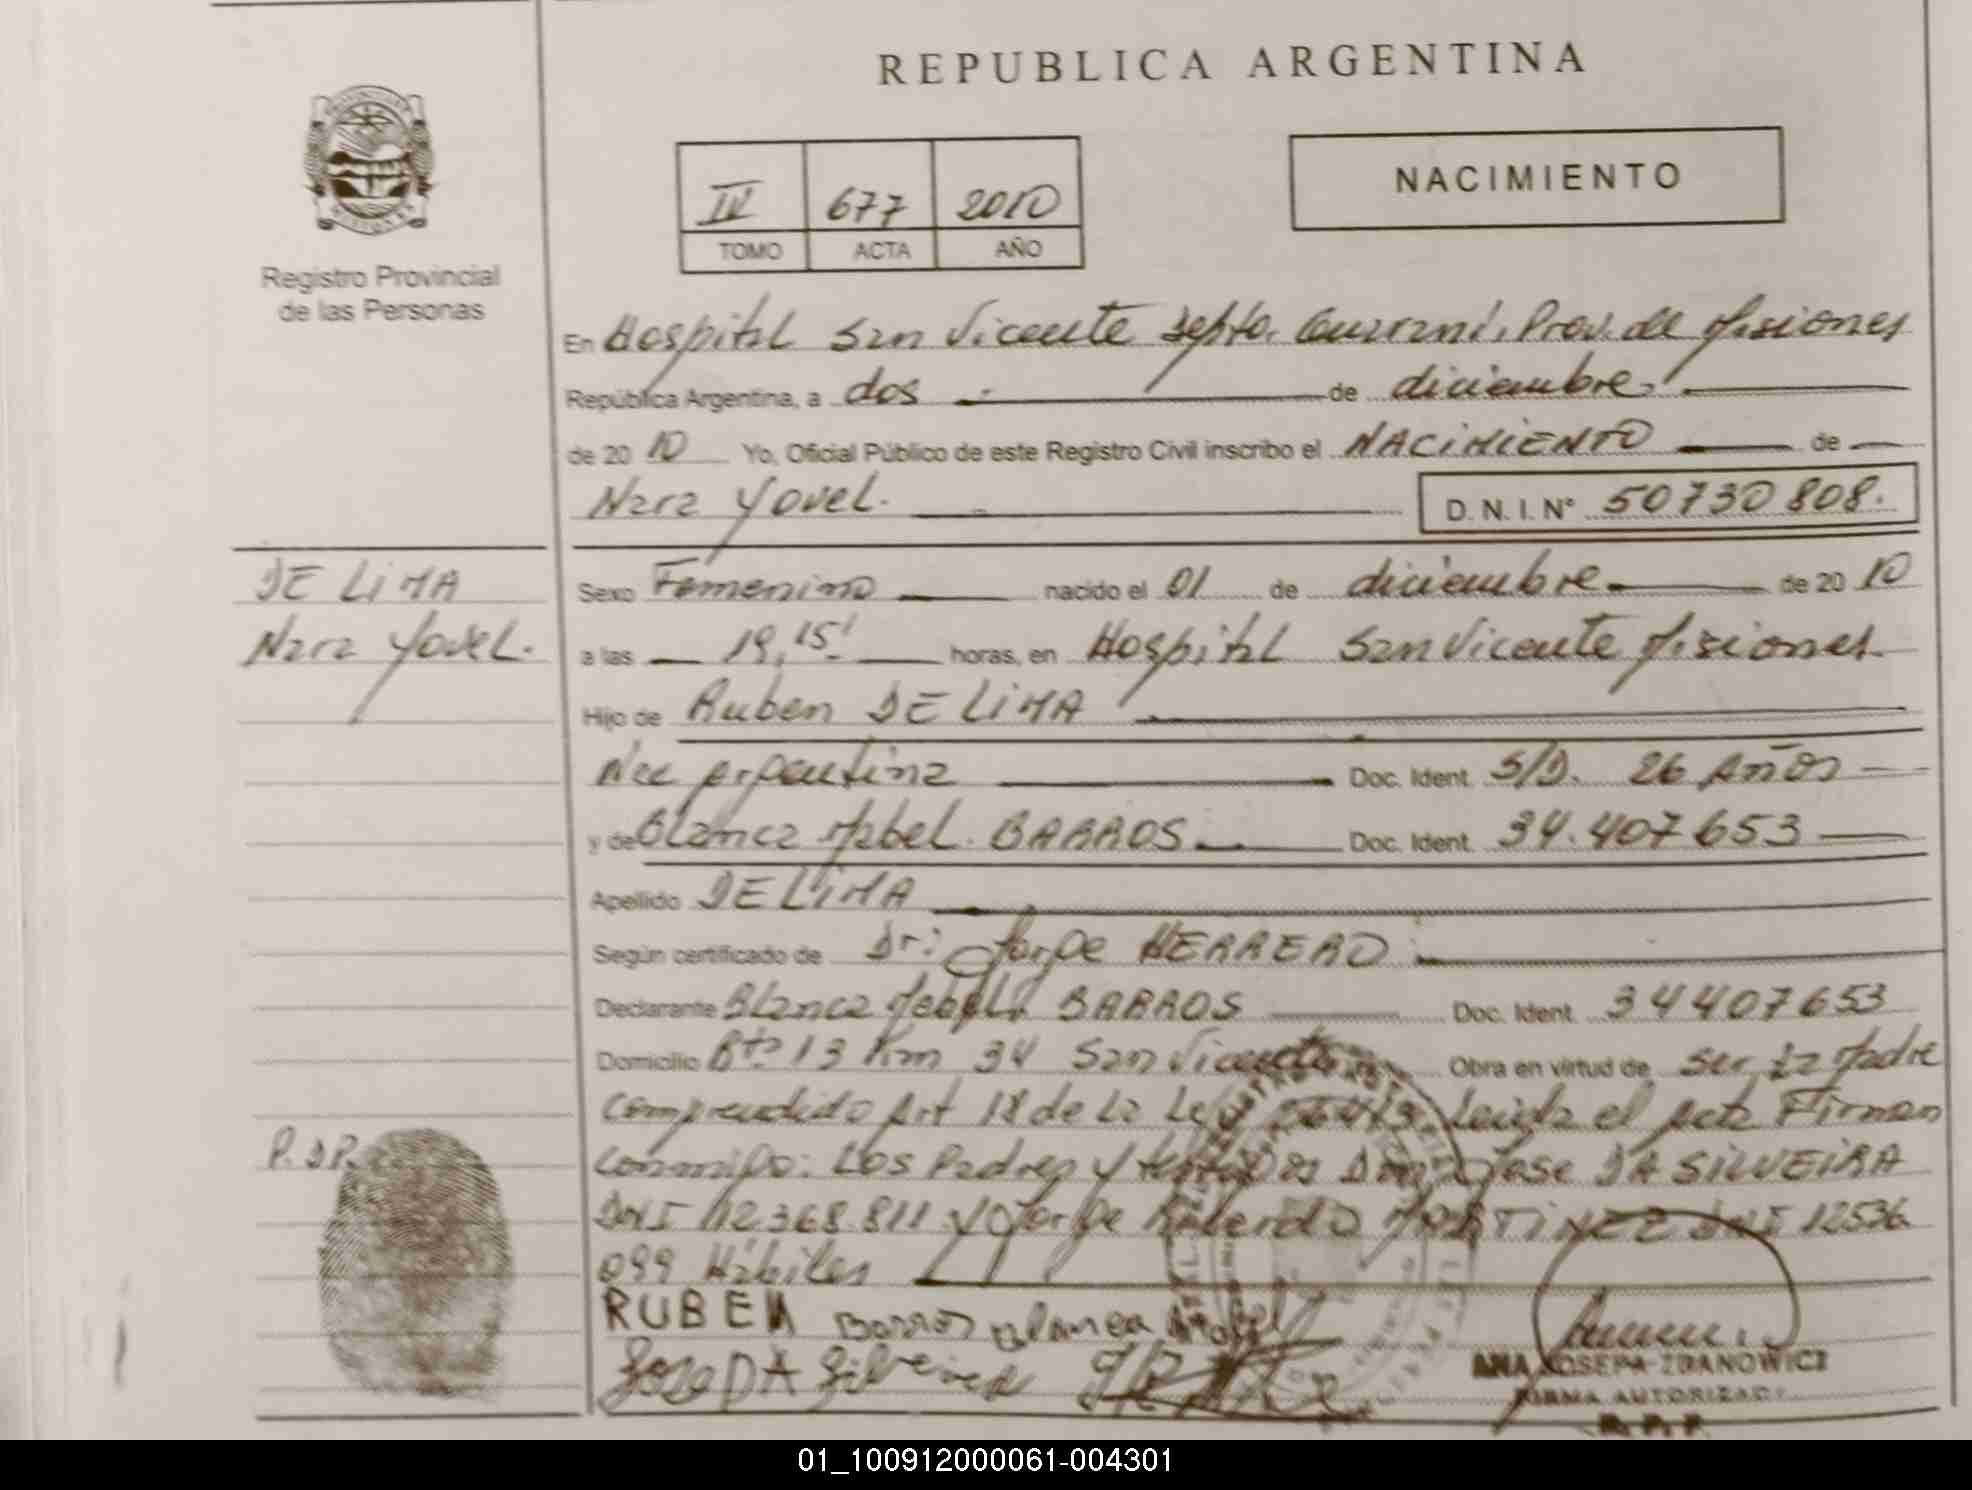 REPUBLICA ARGENTINA
NACIMIENTO
IV 677 2010
TOMO ACTA AÑO
Registro Provincial
de las Personas
En Hospital San Vicente Depto. Guaraní, Prov. de Misiones
República Argentina, a dos de diciembre
de 20 10 Yo, Oficial Público de este Registro Civil inscribo el NACIMIENTO de
Nara Yovel. D. N. I. N° 50730808.
DE LIMA
Nara Yovel.
Sexo Femenino nacido el 01 de diciembre de 20 10
a las 19,15' horas, en Hospital San Vicente Misiones
Hijo de Ruben DE LIMA
Nac Argentina Doc. Ident. S/D. 26 Años
y de Blanca Mabel. BARROS Doc. Ident. 34.407653
Apellido DE LIMA
Según certificado de Dr: Jorge HERRERO
Declarante Blanca Mabel. BARROS Doc. Ident. 34407653
Domicilio Rta 13 Km 34 San Vicente Obra en virtud de ser la Madre
Comprendido Art 18 de La Ley Leida el Acta Firman
P. D.P.
conmigo: Los Padres y testigos Jose DA SILVEIRA
DNI 12.368.811 y Jorge MARTINEZ DNI 12536
099 Hábiles
RUBEN Barros Blanca Mabel
Jose DA Silveira
ANA JOSEFA ZDANOWICZ
FIRMA AUTORIZADA
R. P. P.
01_100912000061-004301